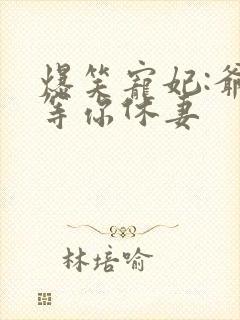 爆笑寵妃:爺
等你休妻
林培喻